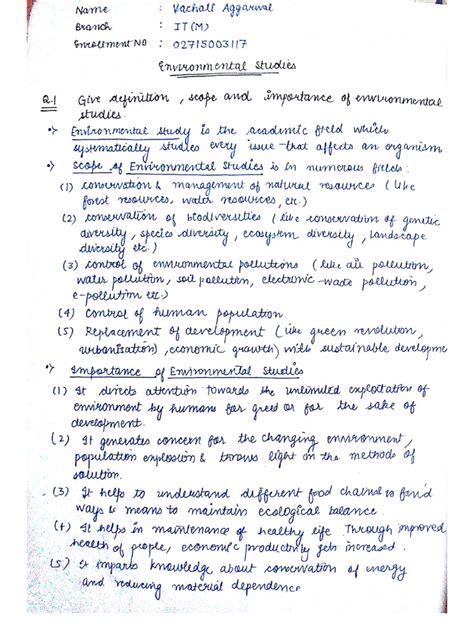 Name : Vachali Aggarwal
Branch : IT(M)
Enrollment NO : 02715003117
Environmental Studies
Q.1 Give definition, scope and importance of environmental
studies.
Environmental study is the academic field which
systematically studies every issue that affects an organism
Scope of Environmental Studies is in numerous fields:
(1) conservation & management of natural resources (like
forest resources, water resources, etc.)
(2) conservation of biodiversities (like conservation of genetic
diversity, species diversity, ecosystem diversity, landscape
diversity etc.)
(3) control of environmental pollutions (like air pollution,
water pollution, soil pollution, electronic-waste pollution,
e-pollution etc.)
(4) Control of human population
(5) Replacement of development (like green revolution,
urbanisation), economic growth) with sustainable developme
Importance of Environmental Studies
(1) It directs attention towards the unlimited exploitation of
environment by humans for greed or for the sake of
development.
(2) It generates concern for the changing environment,
population explosion & throws light on the methods of
solution.
(3) It helps to understand different food chains to find
ways & means to maintain ecological balance.
(4) It helps in maintenance of healthy life. Through improved
health of people, economic productivity gets increased.
(5) It imparts knowledge about conservation of energy
and reducing material dependence